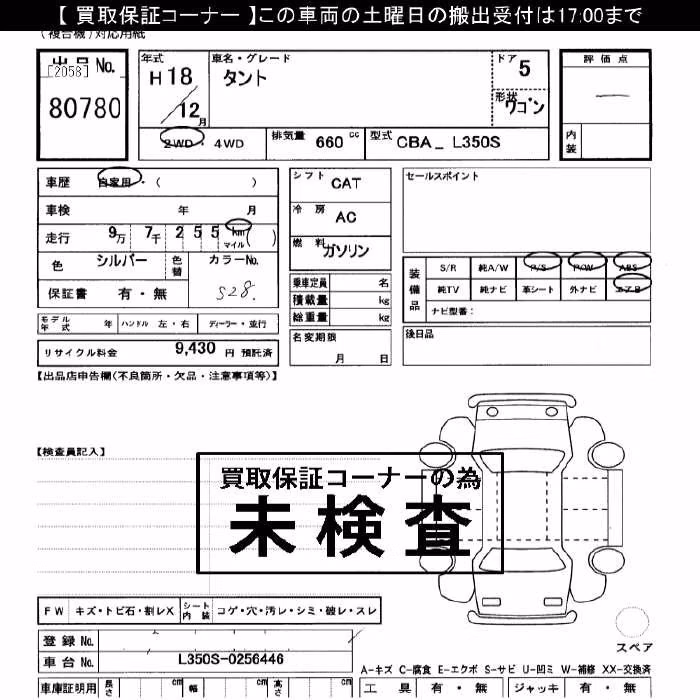 【 買取保証コーナー 】この車両の土曜日の搬出受付は17:00まで
(複合機)対応用紙
出品 No.
[2058]
80780
年式
H 18
12 月
車名・グレード
タント
ドア
5
形状
ワゴン
評価点
内装
2WD ・ 4WD
排気量 660 cc
型式 CBA_ L350S
車歴 自家用 ・ ( )
車検 年 月
走行 9万 7千 2 5 5 km マイル ( )
色 シルバー 色替 カラーNo.
S28.
保証書 有 ・ 無
シフト CAT
冷房 AC
燃料 ガソリン
乗車定員 名
積載量 kg
総重量 kg
セールスポイント
装備品
S/R 純A/W P/S P/W ABS
純TV 純ナビ 革シート 外ナビ エアB
ナビ型番:
モデル年式 年 ハンドル 左・右 ディーラー・並行
名変期限
月 日
後日品
リサイクル料金 9,430 円 預託済
【出品店申告欄(不良箇所・欠品・注意事項等)】
【検査員記入】
買取保証コーナーの為
未検査
FW キズ・トビ石・割レX シート内装 コゲ・穴・汚レ・シミ・破レ・スレ
登録 No.
車台 No. L350S-0256446
スペア
A-キズ C-腐食 E-エクボ S-サビ U-凹ミ W-補修 XX-交換済
車庫証明用 長さ cm 幅 cm 高さ cm
工具 有 ・ 無 ジャッキ 有 ・ 無